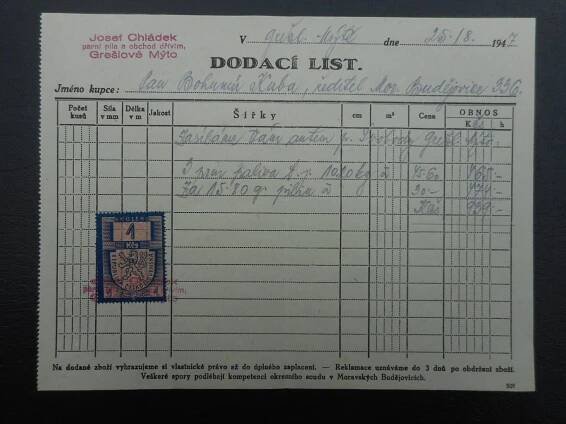 Josef Chládek
parní pila a obchod dřívím,
Grešlové Mýto
V Grešl. Mýtě dne 25./8. 1947
DODACÍ LIST.
Jméno kupce: Pan Bohumír Kuba, ředitel Mor. Budějovice 336.
Počet kusů Síla v mm Délka v m Jakost Šířky cm m³ Cena OBNOS K h
Zasíláme Vám autem p. Grešl. Mýto.
3 prm paliva á 765.-
Za 15.80 á 30.- 474.-
Kčs
KOLEK
1
Kčs
Na dodané zboží vyhrazujeme si vlastnické právo až do úplného zaplacení. — Reklamace uznáváme do 3 dnů po obdržení zboží.
Veškeré spory podléhají kompetenci okresního soudu v Moravských Budějovicích.